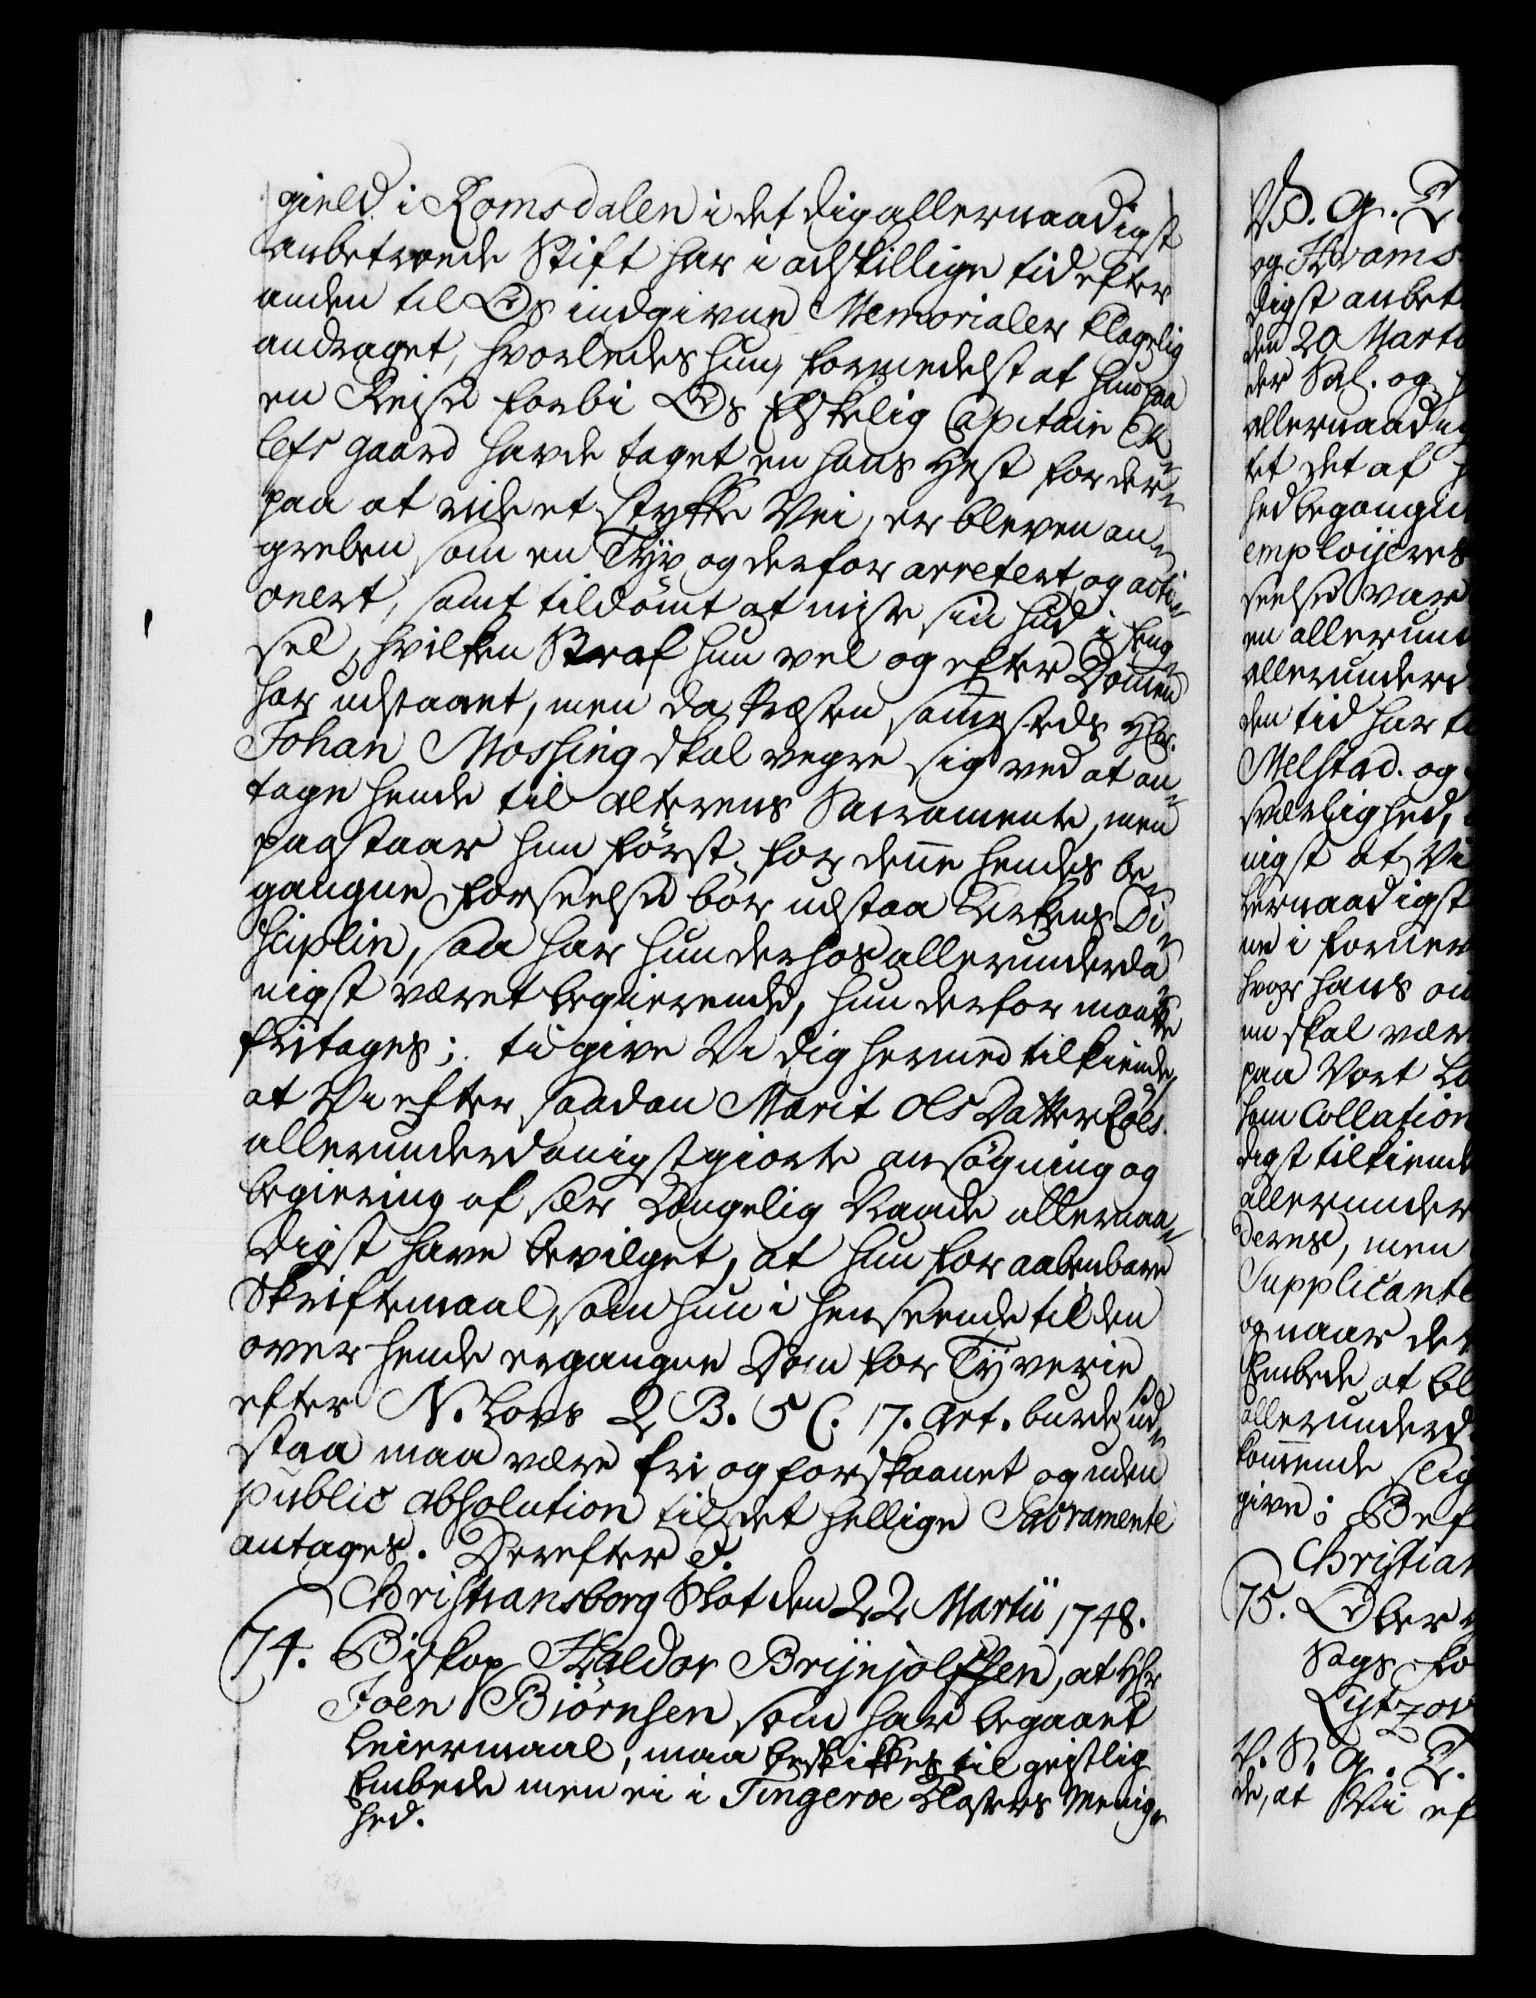 gield i Romsdalen i det dig allernaadigst
anbetroede Stift har i adskillige tid efter
anden til Os indgivne Memorialer klagelig
andraget, hvorledes hun, formedelst at hun paa
en Reise forbi Os Elskelig Capitain Ek-
lefs gaard havde taget en hans Hest for der-
paa at ride et stykke Vei, er bleven an-
greben som en Tyv og derfor arrestert og acti-
onert, samt tildømt at miste sin hud i feng-
sel, hvilken Straf hun vel og efter Dommen
har udstaaet, men da Præsten sammesteds Hr.
Johan Mossing skal vegre sig ved at an-
tage hende til Alterens Sacramente, men
paastaar hun først for denne hendes be-
gangne Forseelse bør udstaa Kirkens Di-
sciplin, saa har hun derhos allerunderda-
nigst været begierende, hun derfor maatte
fritages; ti give Vi dig hermed tilkiende,
at Vi efter saadan Marit Olsdatter Høls.
allerunderdanigst giorte ansøgning og
begiering af sær Kongelig Naade allernaa-
digst have bevilget, at hun for aabenbare
Skriftemaal, som hun i henseende til den
over hende ergangne Dom for Tyverie
efter N. Lovs 2 B. 5 C. 17. Art. burde ud-
staa maa være fri og forskaanet og uden
public absolution til det hellige Sacramente
antages. Derefter d.
Christiansborg Slot den 22 Martii 1748.
74. Biskop Haldor Brÿnjolfsen, at Hr.
Joen Biørnsen som har begaaet
Leiermaal, maa beskikkes til geistlig
Embede men ei i Tingeroe Klosters Menig-
hed.
V. S. G. T.
og Hr
digst anbet
den 20 Marti
der Sal. og
allernaadig
tet det af
hed begangn
emploÿeres
seelse var
en allerund
allerunderd
den tid har
Melstad. og
sværlighed,
nigst at Vi
lernaadigst
ne i former
hvor hans
en skal vær
paa Vort
ham Collation
digst tilkiende
allerunder
deres, men
Supplicante
og naar det
Embede at bl
allerunderd
kommende
give; Bef
Christian
75. Ober
Sogs fo
Lÿtzow
V. S. G. T.
de, at Vi ef